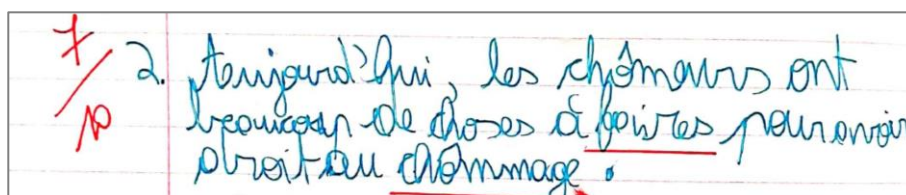 7/10
2. Aujourd'hui, les chômeurs ont
beaucoup de choses à faires pour avoir
droit au chômmage.